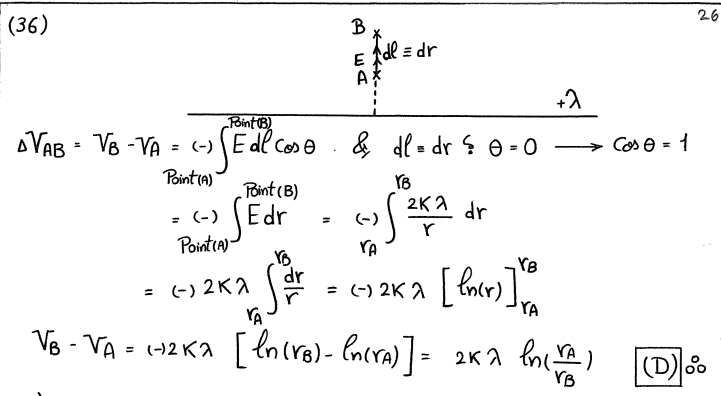 (36)
26
B
E dl ≡ dr
A
+λ
ΔV_AB = V_B - V_A = (-) ∫_Point(A)^Point(B) E dl Cos θ . & dl ≡ dr ⸮ θ = 0 ⟶ Cos θ = 1
= (-) ∫_Point(A)^Point(B) E dr = (-) ∫_{r_A}^{r_B} 2Kλ/r dr
= (-) 2Kλ ∫_{r_A}^{r_B} dr/r = (-) 2Kλ [ln(r)]_{r_A}^{r_B}
V_B - V_A = (-)2Kλ [ln(r_B) - ln(r_A)] = 2Kλ ln(r_A/r_B) (D)